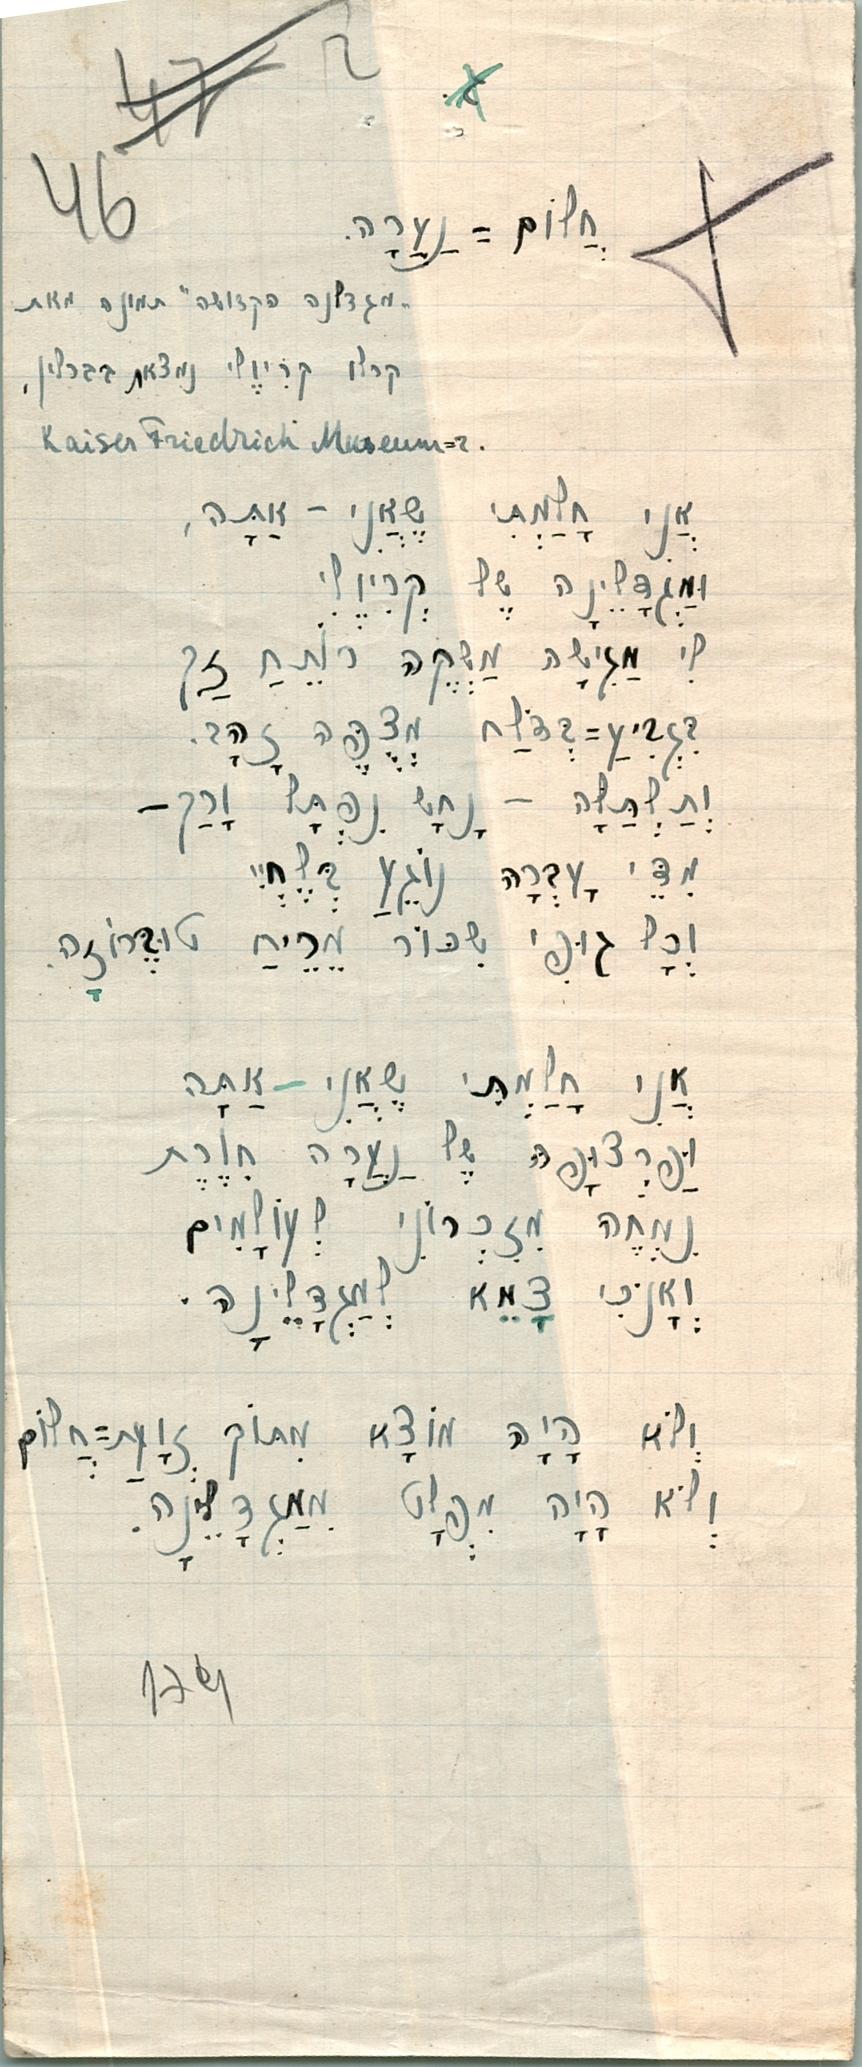 47
46
חֲלוֹם = נַעֲרָה.
"מגדלנה הקדושה" תמונה מאת
קרלו קרִיוֶלי נמצאת בברלין,
Kaiser Friedrich Museum=ב.
אֲנִי חָלַמְתִּי שֶׁאֲנִי – אַתָּה,
וּמַגְדָלֵינָה שֶׁל קְרִיוֶלִי
לִי מַגִישָׁה מַשְׁקֶה רוֹתֵחַ זַךְ
בִּגְבִיעַ=בְּדֹלַח מְצֻפֶּה זָהָב.
וְתַלְתַּלָּהּ – נָחָשׁ נִפְתָּל וָרַךְ –
מִדֵּי עָבְרָהּ נוֹגֵעַ בְּלֶחְיִי
וְכָל גוּפִי שִׁכּוֹר מֵרֵיחַ טוּבֶּרוֹזָה.
אֲנִי חָלַמְתִּי שֶׁאֲנִי – אַתָּה
וּפַרְצוּפָהּ שֶׁל נַעֲרָה חִוֶּרֶת
נִמְחֶה מִזִכְרוֹנִי לְעוֹלָמִים
וְאָנֹכִי צָמֵא לְמַגְדָלֵינָה.
וְלֹא הָיָה מוֹצָא מִתּוֹךְ זְוָעַת=חֲלוֹם
וְלֹא הָיָה מִפְלָט מִמַּגְדָלֵינָה.